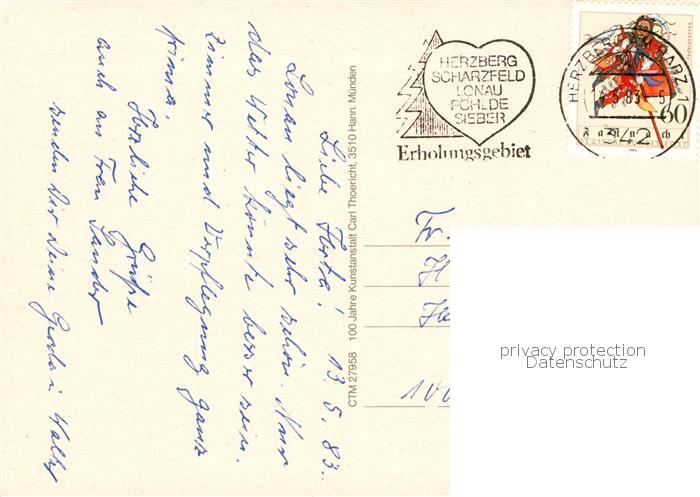 Liebe Herta! 13.5.83.
Lonau liegt sehr schön. Nur
das Wetter könnte besser sein.
Zimmer und Verpflegung ganz
prima.
Herzliche Grüße
auch an Frau Sander
senden Dir Deine Gerda u. Walter
CTM 27958 100 Jahre Kunstanstalt Carl Thoericht, 3510 Hann. Münden
HERZBERG
SCHARZFELD
LONAU
PÖHLDE
SIEBER
Erholungsgebiet
HERZBERG AM HARZ 1
5.83-5
342
60
Fr.
100
privacy protection
Datenschutz